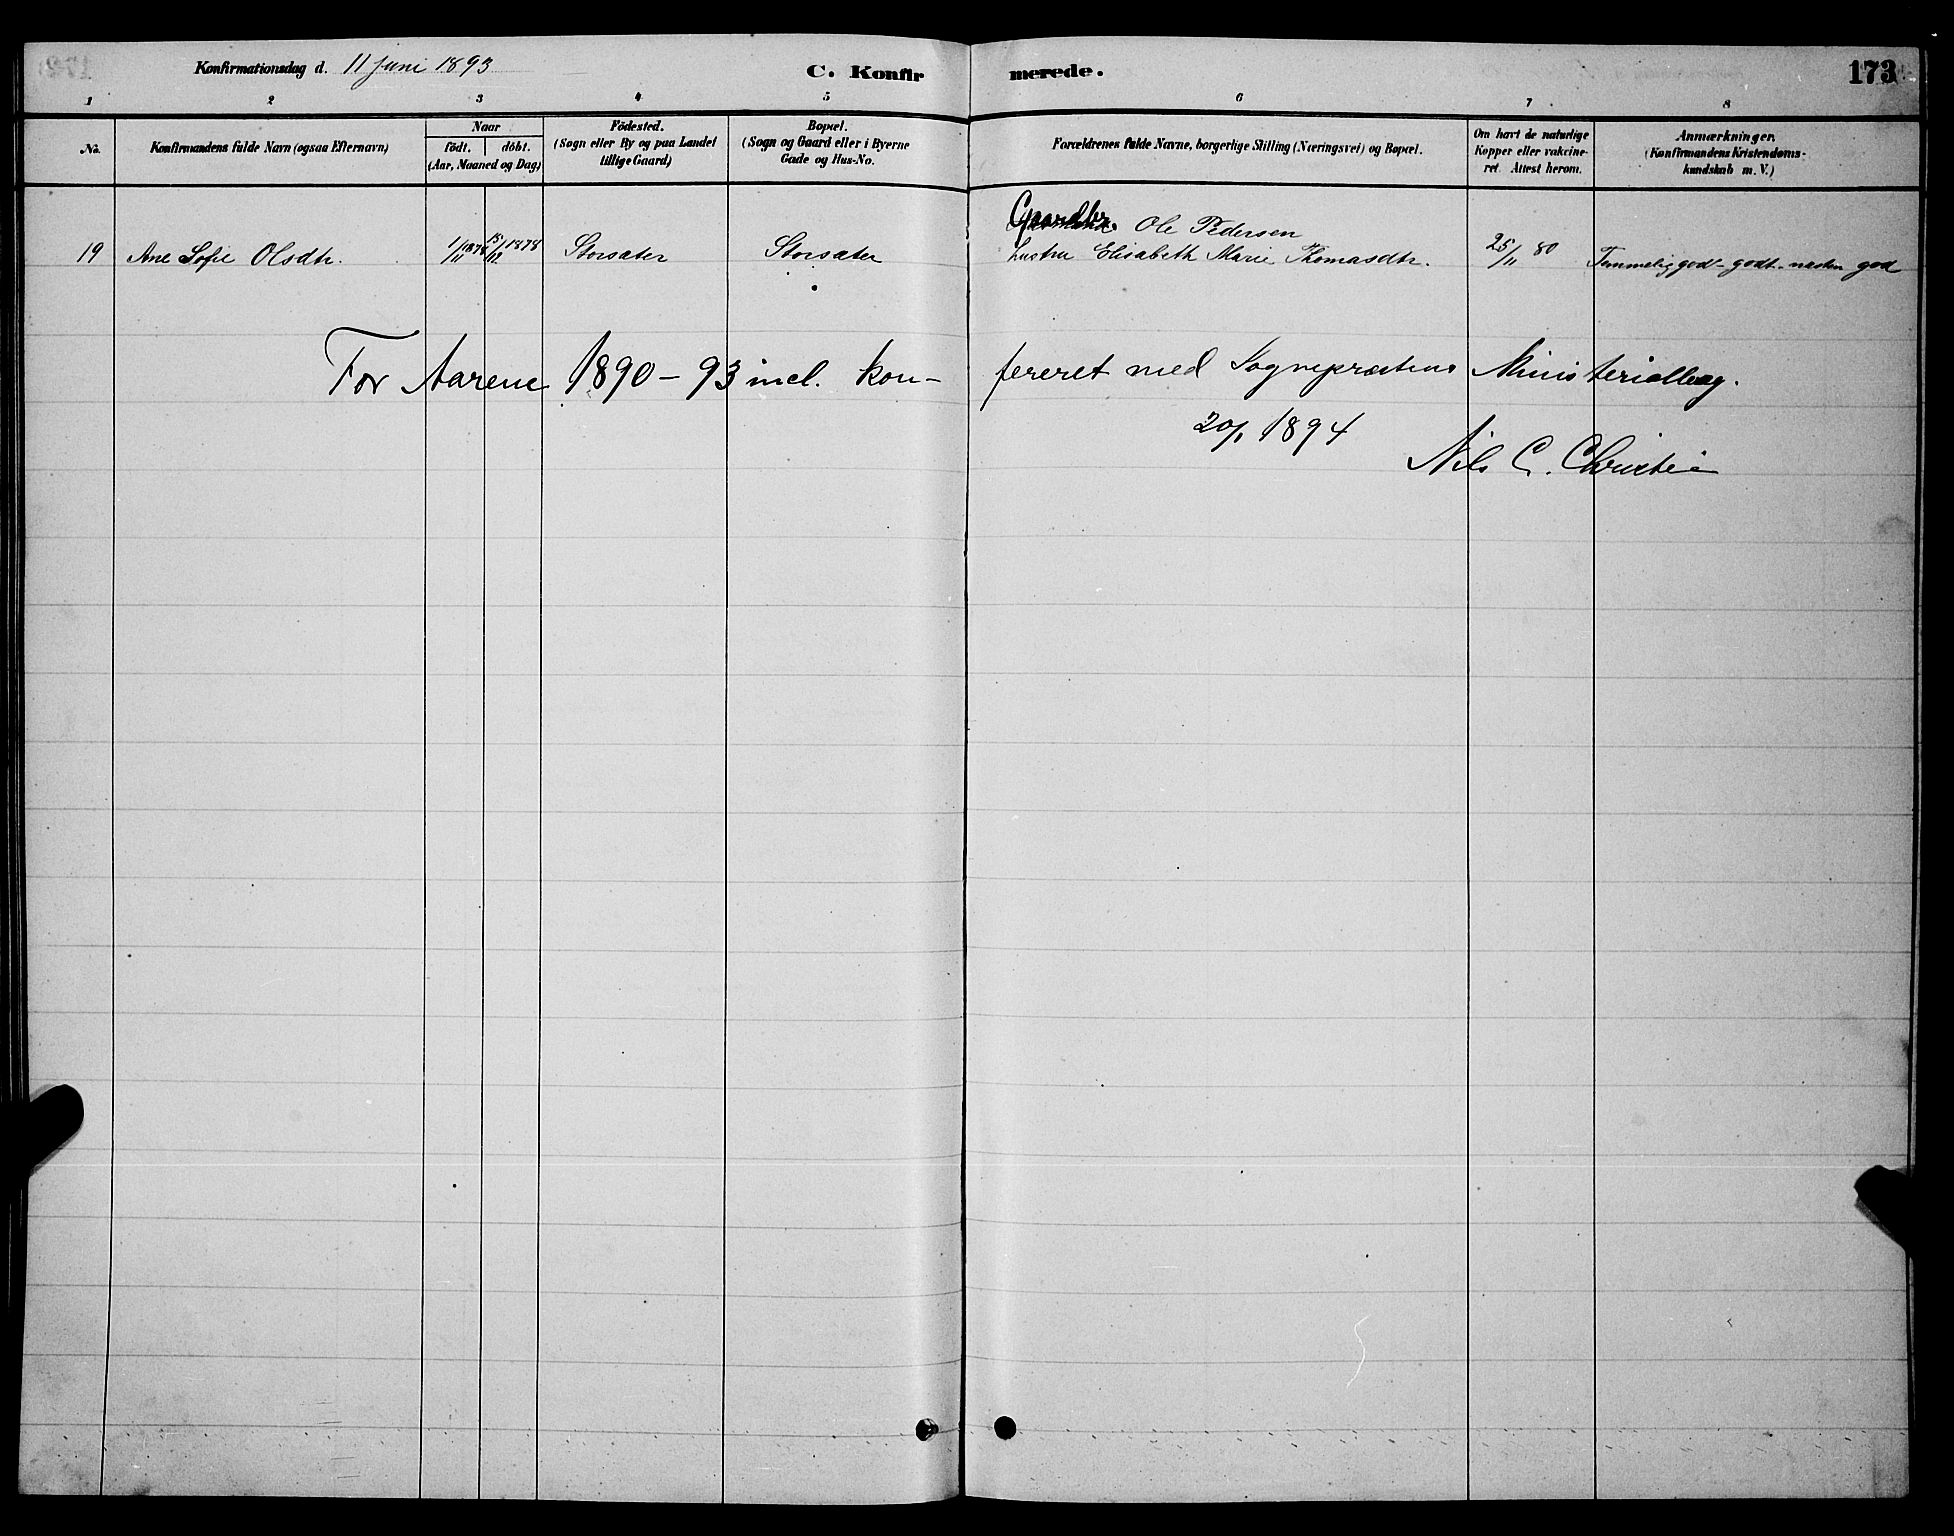 Konfirmationsdag d. 11 Juni 1893
C. Konfir merede. 173
1 2 3 4 5 6 7 8
No. Konfirmandens fulde Navn (ogsaa Efternavn) Naar födt. döbt. (Aar, Maaned og Dag) Födested. (Sogn eller By og paa Landet tillige Gaard) Bopæl. (Sogn og Gaard eller i Byerne Gade og Hus-No. Forældrenes fulde Navne, borgerlige Stilling (Næringsvei) og Bopæl. Om havt de naturlige Kopper eller vakcineret. Attest herom. Anmærkninger. (Konfirmandens Kristendomskundskab m. V.)
Gaardbr. Ole Pedersen
19 Ane Sofie Olsdtr. 1/11 1878 15/12 1878 Storsæter Storsæter Hustru Elisabeth Marie Thomasdtr. 25/11 80 Temmelig god - godt - næsten god
For Aarene 1890-93 incl. konfereret med Sognepræstens Ministerialbog.
20/1 1894
Nils C. Christie